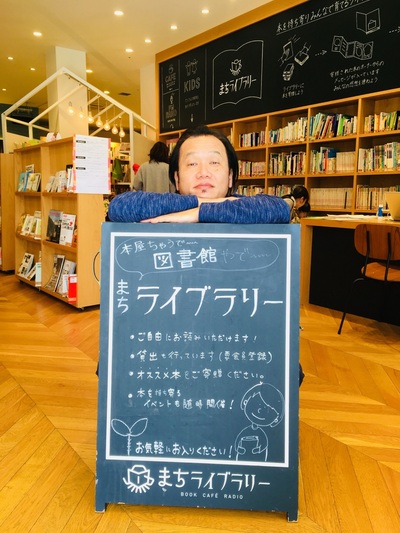 本を持ち寄りみんなで育てる
CAFE
KIDS
まちライブラリー
本屋ちゃうでー
図書館やでー
まち
ライブラリー
●ご自由にお読みいただけます!
●貸出も行っています(要会員登録)
●オススメ本をご寄贈ください。
●本を持ち寄る
イベントも随時開催!
お気軽にお入りください!
まちライブラリー
BOOK CAFÉ RADIO